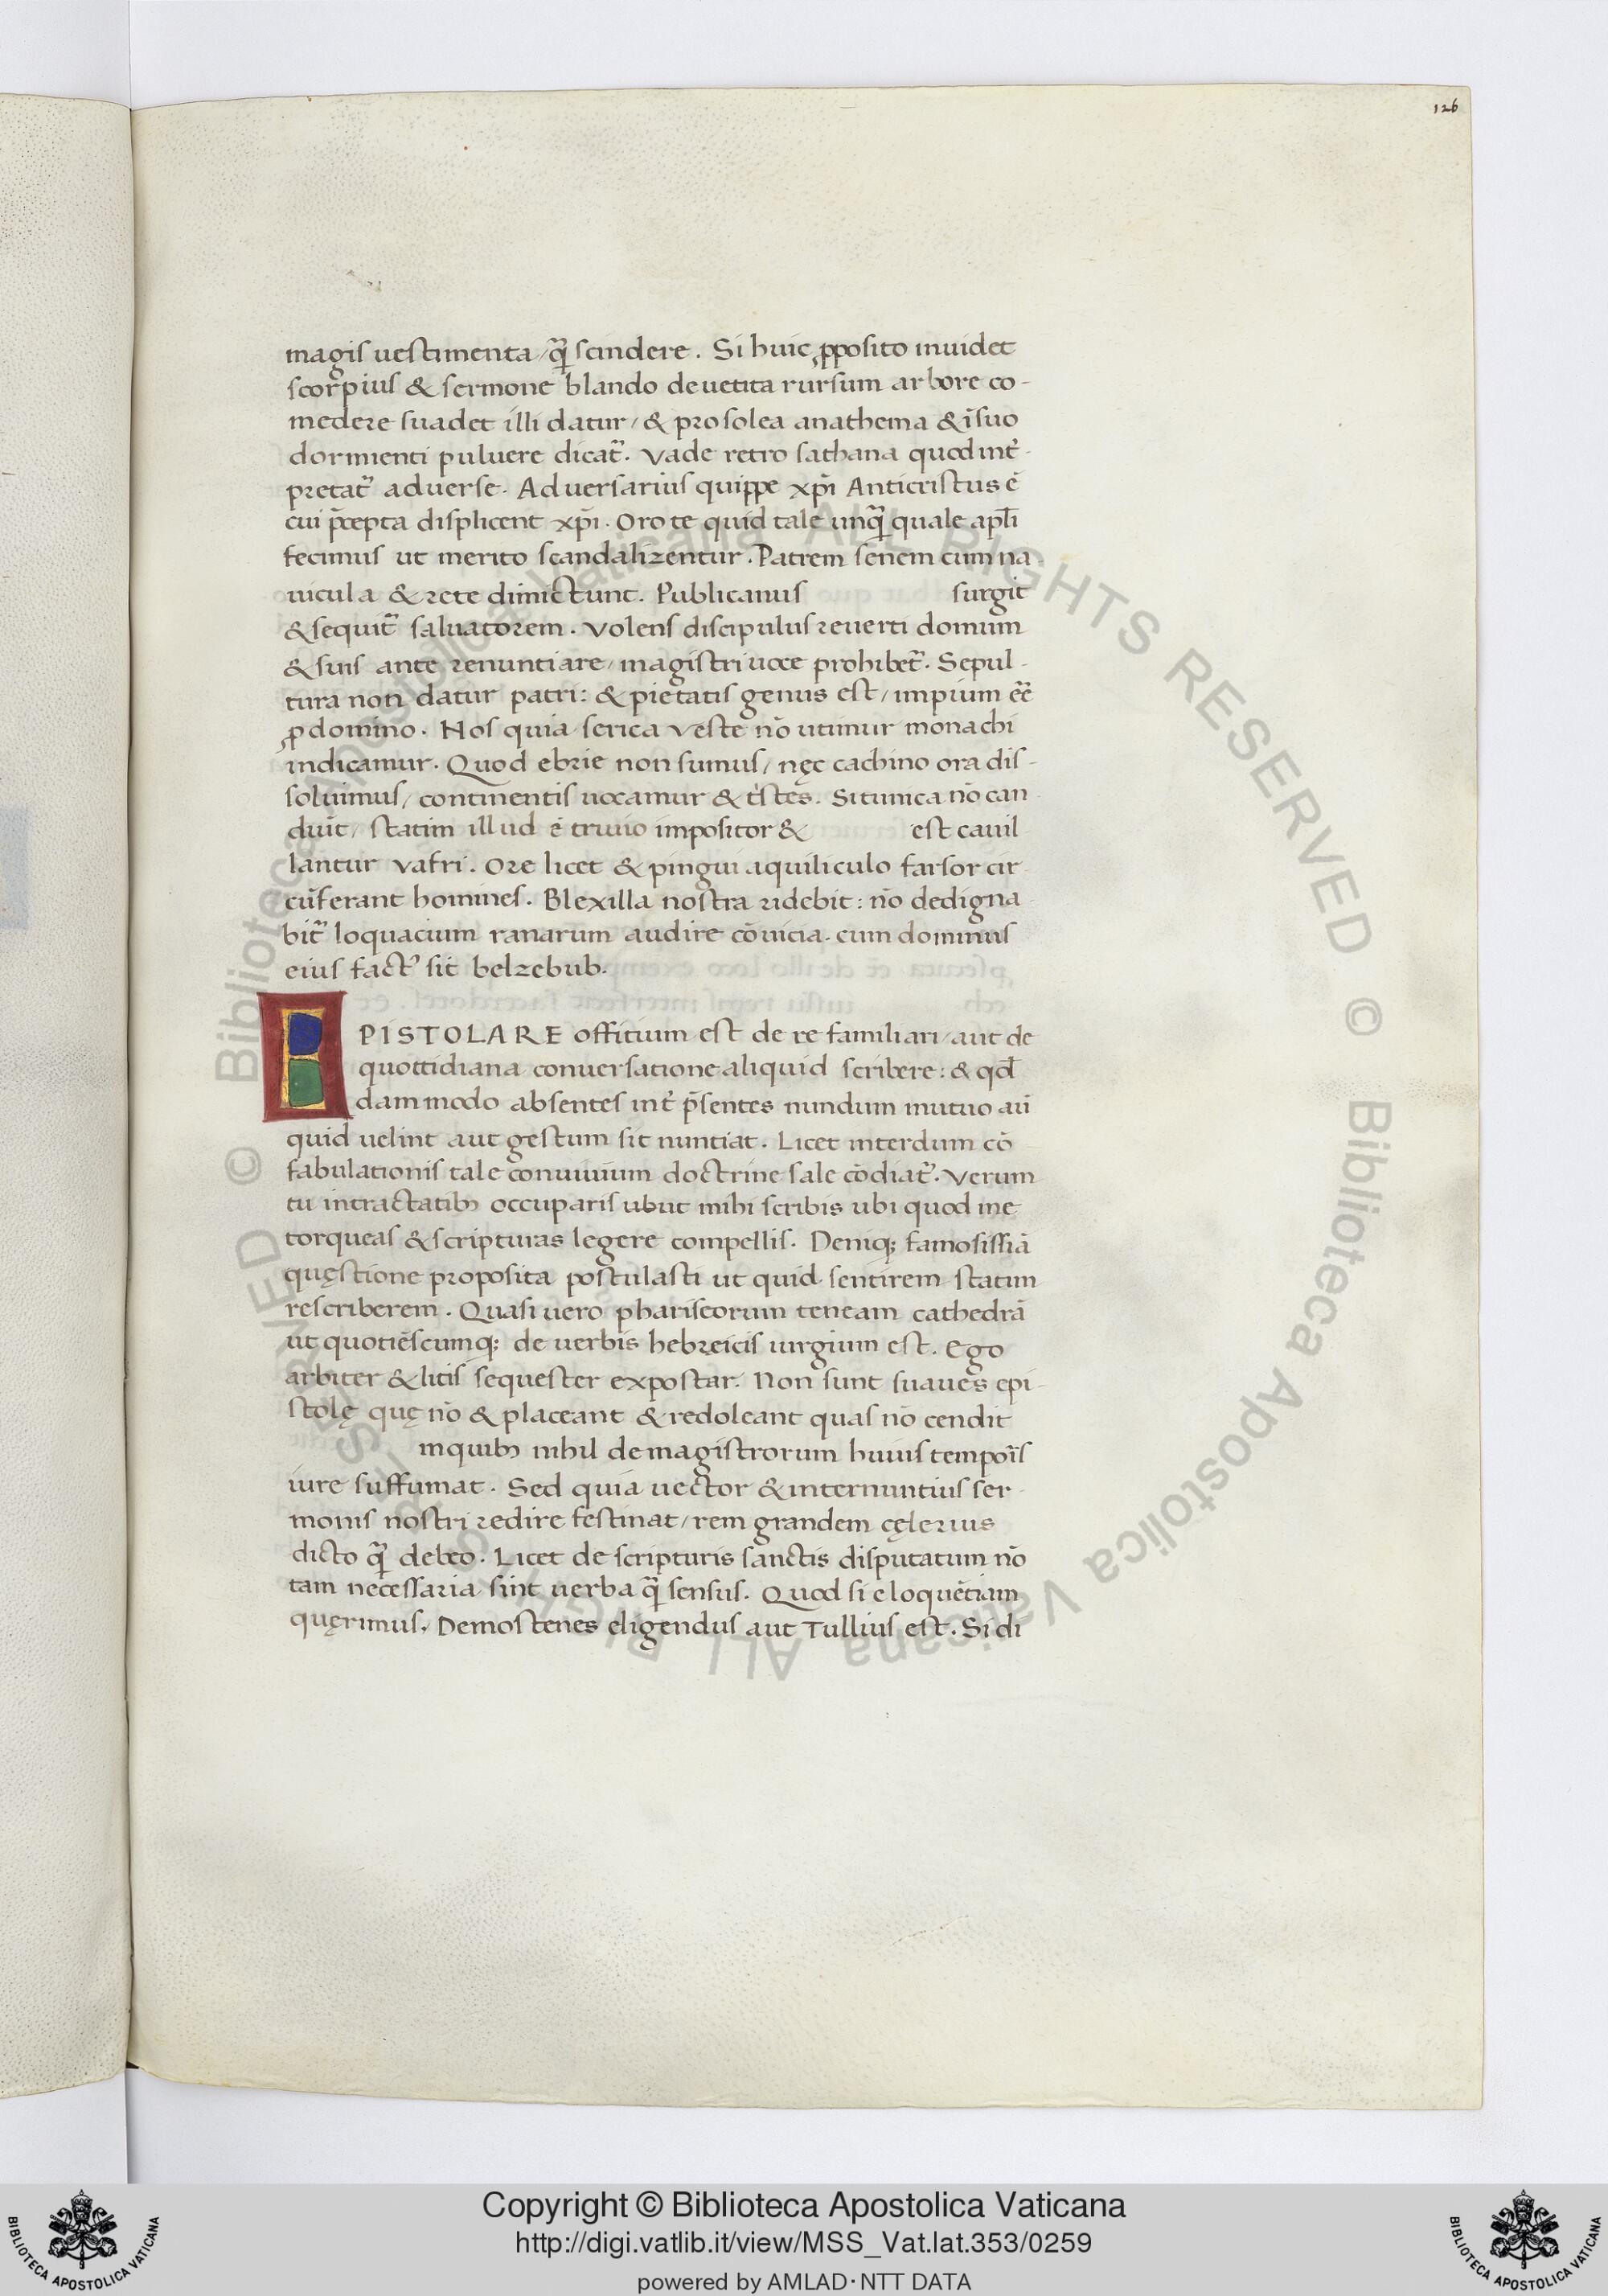 126
magis uestimenta / quã scindere. Si huic ꝓposito inuidet
scorpius & sermone blando de uetita rursum arbore co-
medere suadet illi datur / & pro solea anathema & ĩ suo
dormienti puluere dicat᷑. Vade retro sathana quod int̃-
pretat᷑ aduerse. Aduersarius quippe xp̃i Anticristus ẽ
cui p̃cepta displicent xp̃i. Oro te quid tale unquã quale apłi
fecimus ut merito scandalizentur. Patrem senem cum na-
uicula & rete dimictunt. Publicanus surgit
& sequit᷑ saluatorem. Volens discipulus reuerti domum
& suis ante renuntiare / magistri uoce prohibet᷑. Sepul-
tura non datur patri: & pietatis genus est / impium eẽ
ꝓ domino. Nos quia serica veste nõ utimur monachi
indicamur. Quod ebrie non sumus / nęc cachino ora dis-
soluimus / continentis uocamur & tͥstes. Si tunica nõ can
duit / statim illud ẽ triuio impositor & est cauil
lantur vafri. Ore licet & pingui aquiliculo farsor cir
cũferant homines. Blexilla nostra ridebit: nõ dedigna
bit᷑ loquacium ranarum audire cõuicia. cum dominus
eius fact᷒ sit belzebub.
EPISTOLARE officium est de re familiari / aut de
quottidiana conuersatione aliquid scribere: & qđ
dam modo absentes int̃ p̃sentes nundum mutuo aũ
quid uelint aut gestum sit nuntiat. Licet interdum cõ
fabulationis tale conuiuium doctrine sale cõdiat᷑. Verum
tu in tractatibꝫ occuparis ubut mihi scribis ubi quod me
torqueas & scripturas legere compellis. Deniqꝫ famosissiã
quęstione proposita postulasti ut quid sentirem statim
rescriberem. Quasi uero phariseorum teneam cathedrã
ut quotiẽscumqꝫ de uerbis hebreicis iurgium est. Ego
arbiter & litis sequester expostar. Non sunt suaues epi-
stolę quę nõ & placeant & redoleant quas nõ cendit
in quibꝫ nihil de magistrorum huius tempoĩs
iure suffumat. Sed quia uector & internuntius ser-
monis nostri redire festinat / rem grandem cęlerius
dicto quã debeo. Licet de scripturis sanctis disputatum nõ
tam necessaria sint uerba quã sensus. Quod si eloquẽtiam
quęrimus. Demostenes eligendus aut Tullius est. Si di
© Biblioteca Apostolica Vaticana ALL RIGHTS RESERVED © Biblioteca Apostolica Vaticana ALL RIGHTS RESERVED
Copyright © Biblioteca Apostolica Vaticana
http://digi.vatlib.it/view/MSS_Vat.lat.353/0259
powered by AMLAD·NTT DATA
BIBLIOTECA APOSTOLICA VATICANA
BIBLIOTECA APOSTOLICA VATICANA